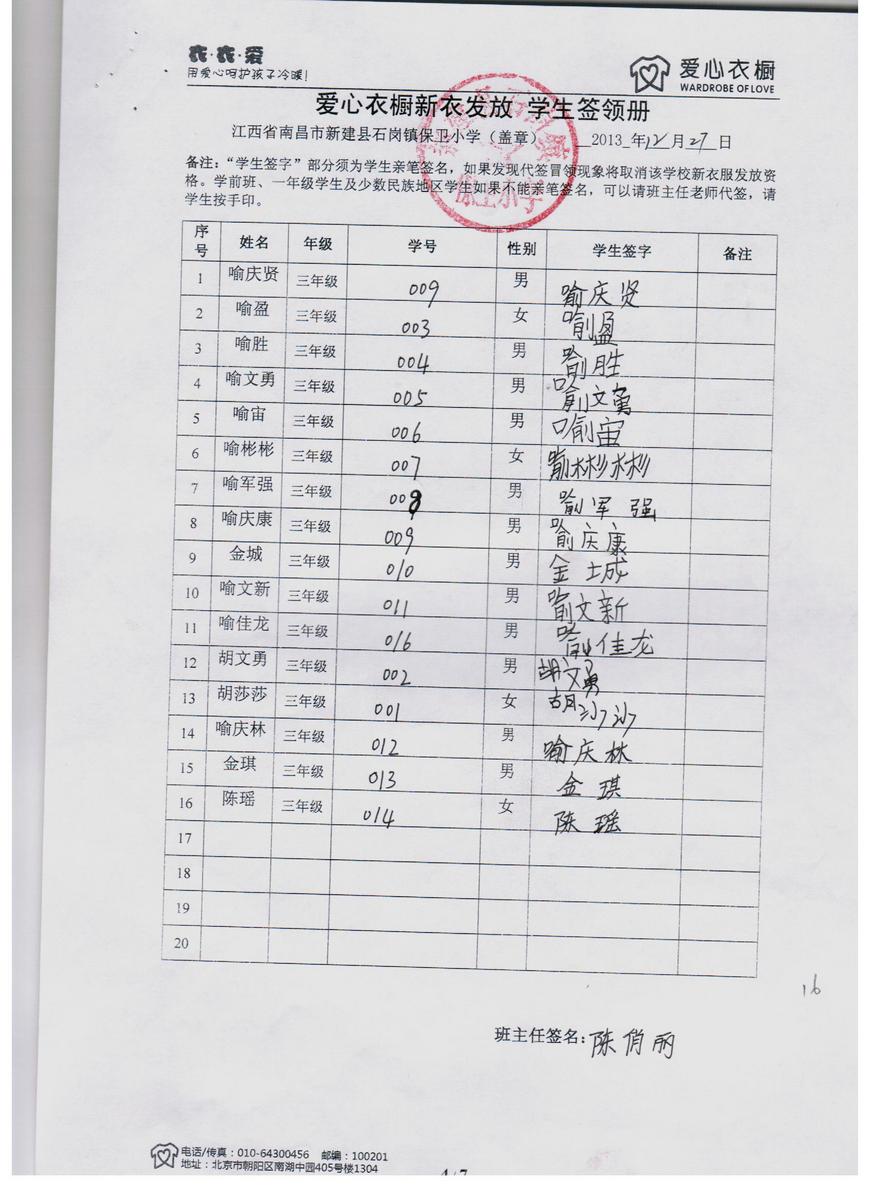 衣·衣·爱
用爱心呵护孩子冷暖!
爱心衣橱
WARDROBE OF LOVE
爱心衣橱新衣发放 学生签领册
江西省南昌市新建县石岗镇保卫小学（盖章） 2013 年12月27日
备注：“学生签字”部分须为学生亲笔签名，如果发现代签冒领现象将取消该学校新衣服发放资
格。学前班、一年级学生及少数民族地区学生如果不能亲笔签名，可以请班主任老师代签，请
学生按手印。
序号 姓名 年级 学号 性别 学生签字 备注
1 喻庆贤 三年级 009 男 喻庆贤
2 喻盈 三年级 003 女 喻盈
3 喻胜 三年级 004 男 喻胜
4 喻文勇 三年级 005 男 喻文勇
5 喻宙 三年级 006 男 喻宙
6 喻彬彬 三年级 007 女 喻彬彬
7 喻军强 三年级 008 男 喻军强
8 喻庆康 三年级 009 男 喻庆康
9 金城 三年级 010 男 金城
10 喻文新 三年级 011 男 喻文新
11 喻佳龙 三年级 016 男 喻佳龙
12 胡文勇 三年级 002 男 胡文勇
13 胡莎莎 三年级 001 女 胡沙沙
14 喻庆林 三年级 012 男 喻庆林
15 金琪 三年级 013 男 金琪
16 陈瑶 三年级 014 女 陈瑶
17
18
19
20
16
班主任签名：陈俏丽
电话/传真：010-64300456 邮编：100201
地址：北京市朝阳区南湖中园405号楼1304
4/7